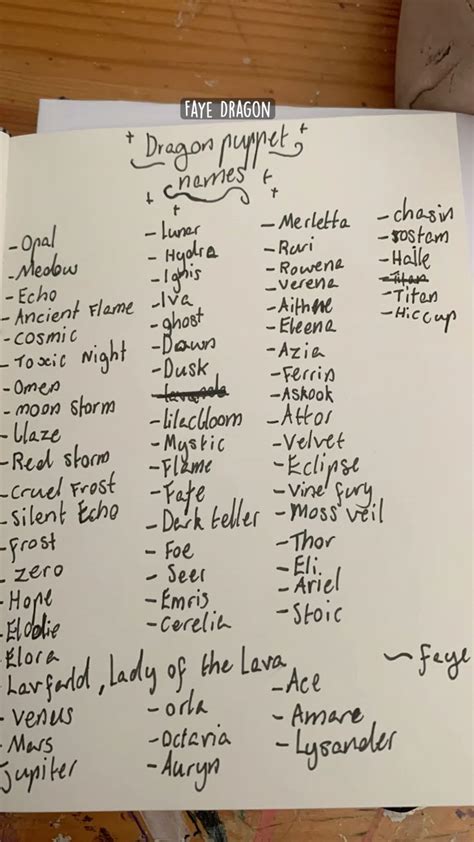 FAYE DRAGON
Dragon puppet
names
- Opal
- Medow
- Echo
- Ancient Flame
- Cosmic
- Toxic Night
- Omen
- moon storm
- blaze
- Red storm
- Cruel Frost
- Silent Echo
- frost
- zero
- Hope
- Elodie
- Elora
- Lavfarld, Lady of the Lava
- Venus
- Mars
Jupiter
- Lunar
- Hydra
- Ignis
- Iva
- ghost
- Dawn
- Dusk
- lilacbloom
- Mystic
- Flame
- Fate
- Dark teller
- Foe
- Seer
- Emris
- Cerelia
- orla
- Octavia
- Auryn
- Merletta
- Ruri
- Rowena
- Verena
- Aithne
- Eleena
- Azia
- Ferrin
- Askook
- Attor
- Velvet
- Eclipse
- Vine fury
- Moss veil
- Thor
- Eli
- Ariel
- Stoic
- Ace
- Amare
- Lysander
- chasin
- rostam
- Halle
- Titan
- Titan
- Hiccup
~ faye